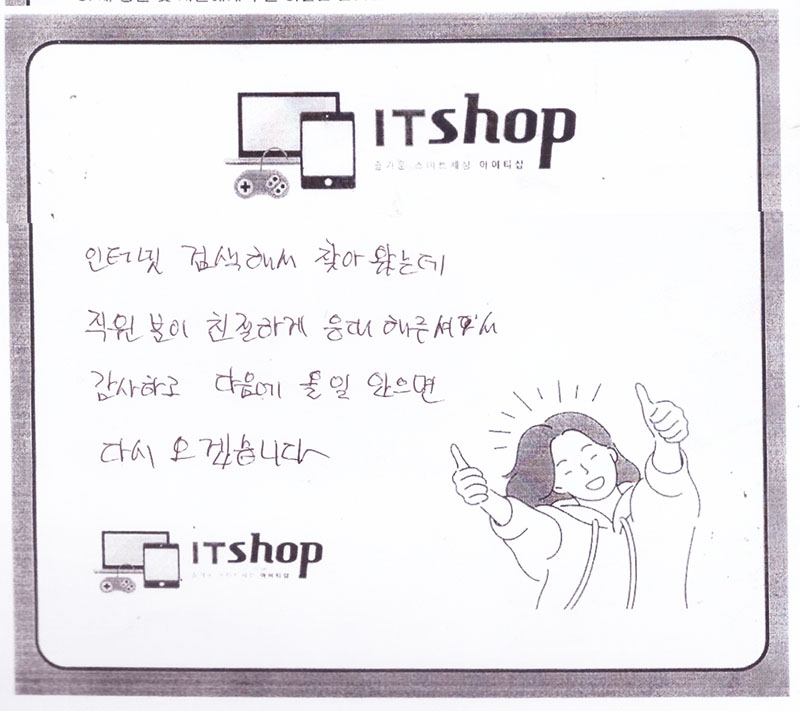 ITshop
즐거운 스마트세상 아이티샵
인터넷 검색해서 찾아 왔는데
직원 분이 친절하게 응대 해주셔서
감사하고 다음에 올일 있으면
다시 오겠습니다
ITshop
아이티샵